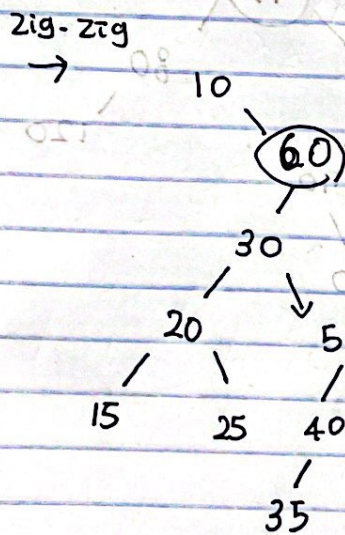 zig-zig
→ 10
60
30
20 5
15 25 40
35